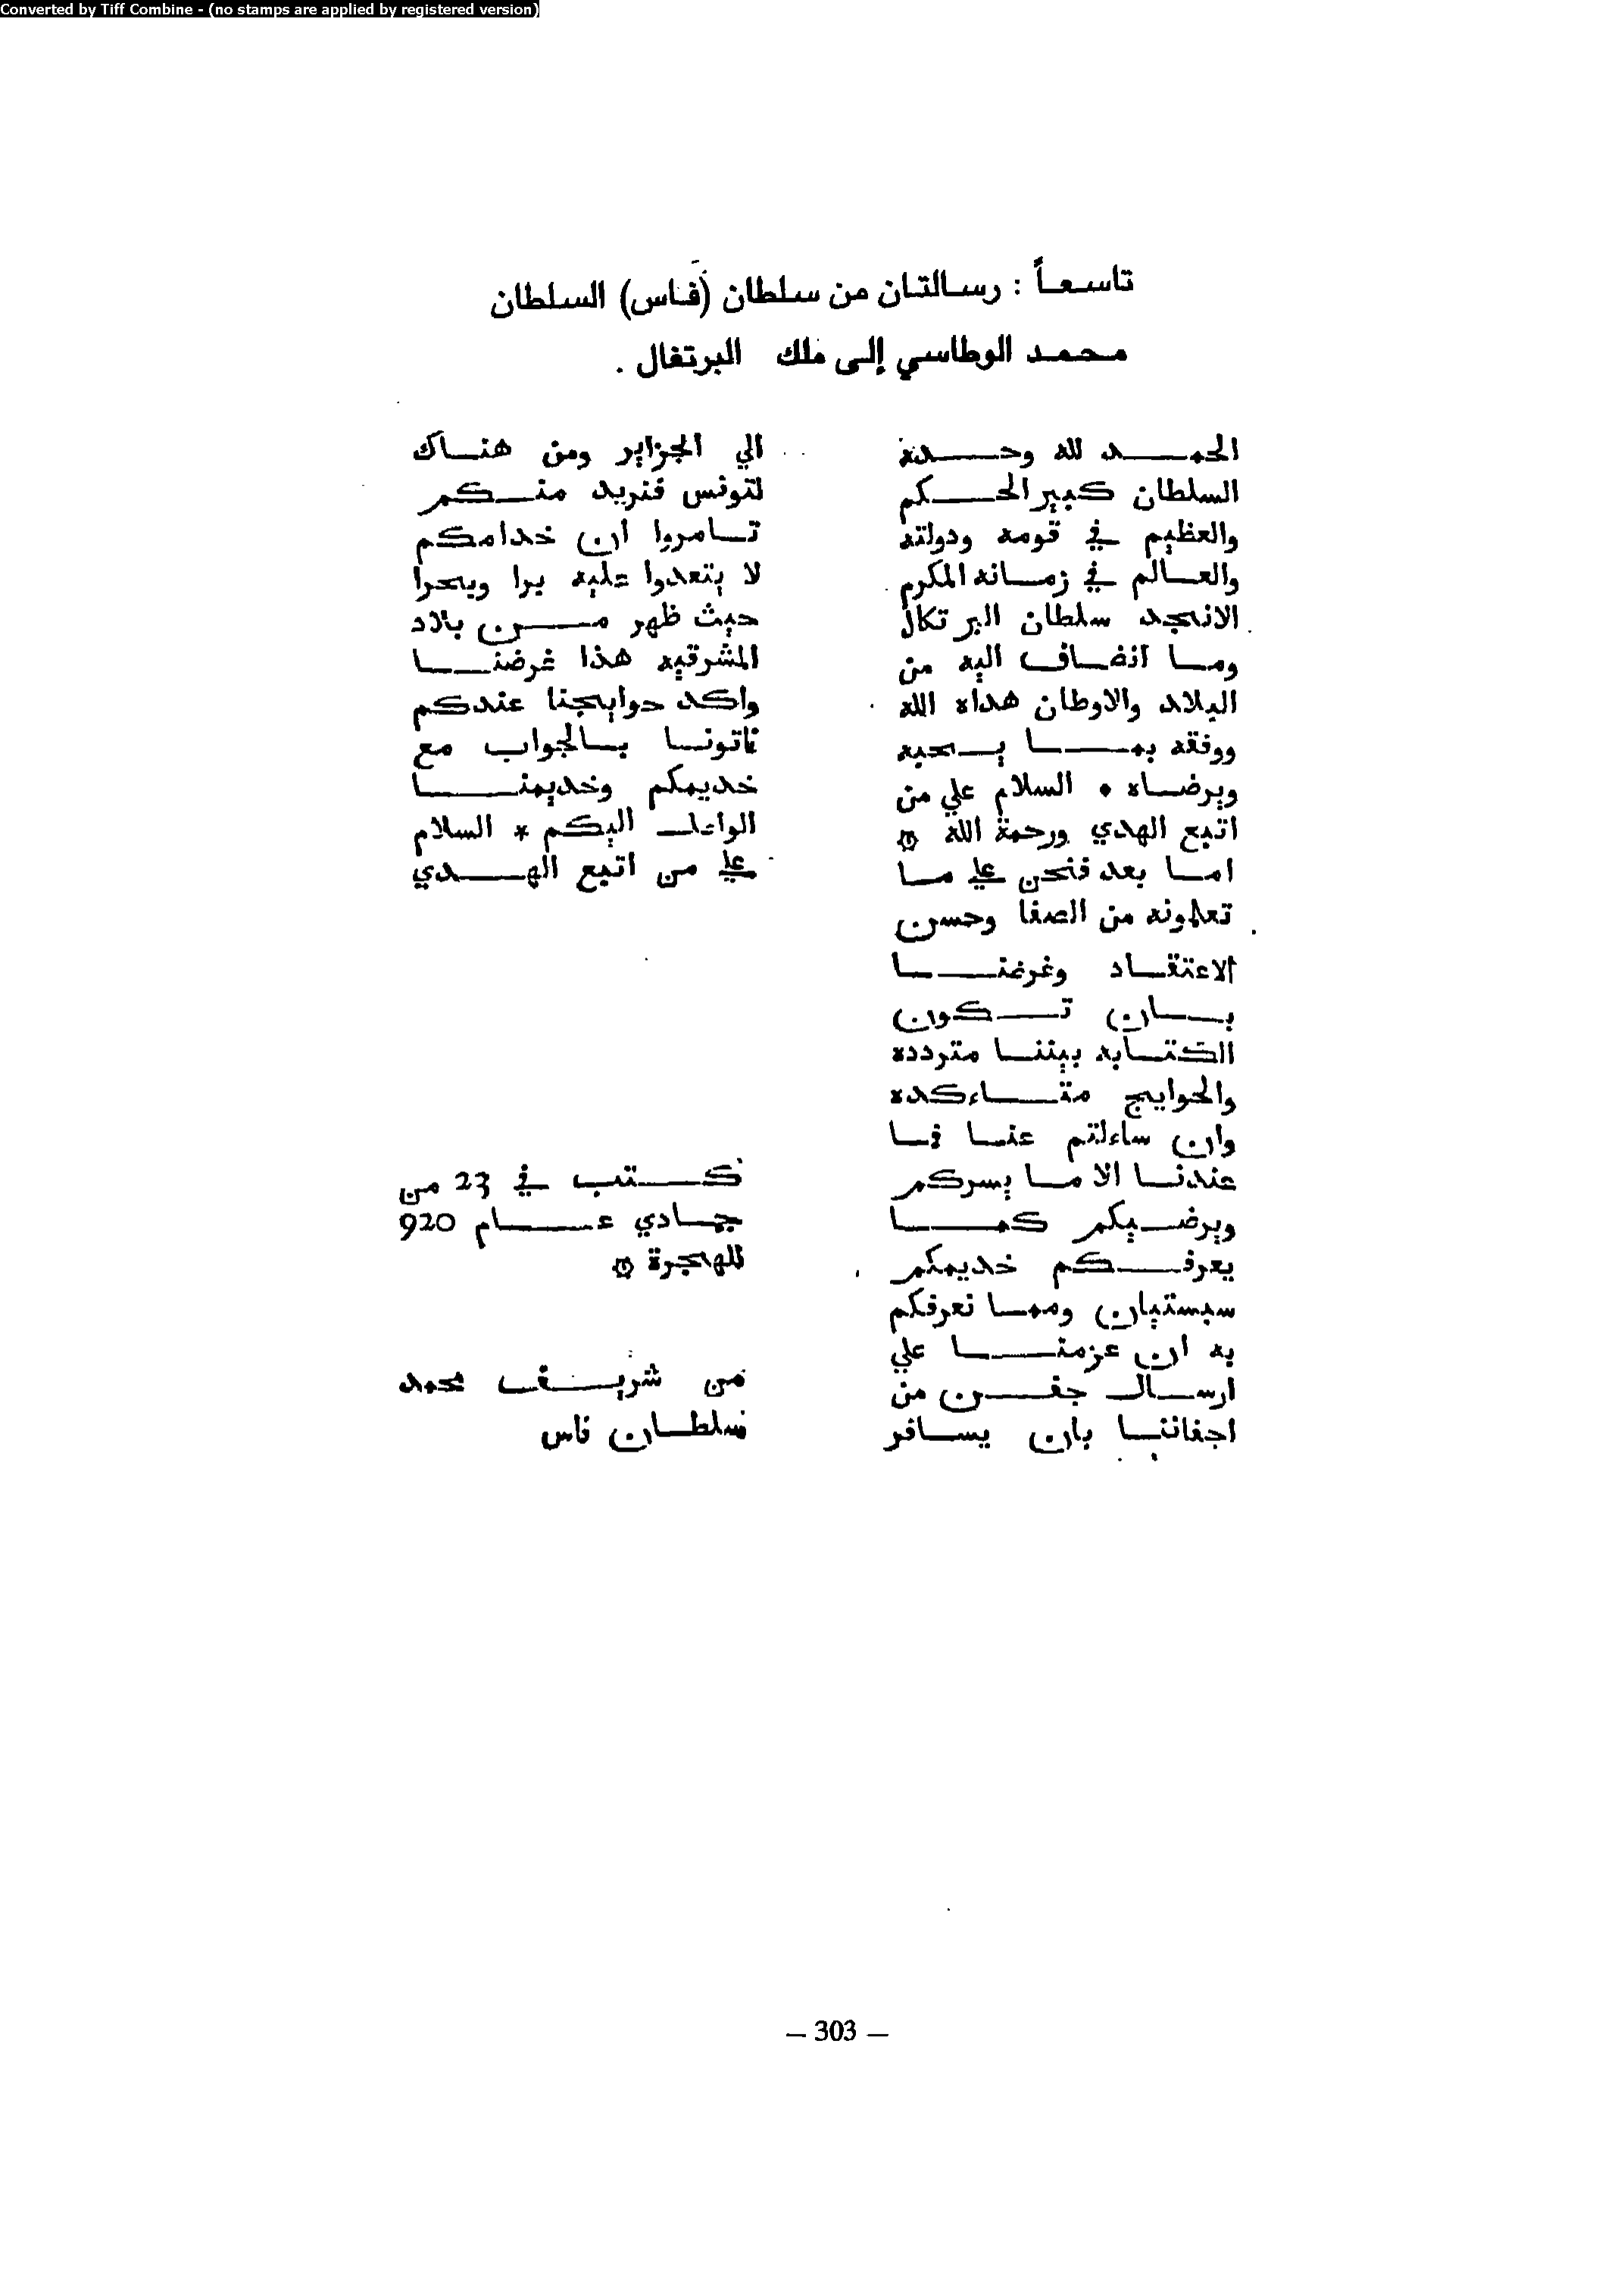 Converted by Tiff Combine - (no stamps are applied by registered version)
تاسعاً : رسالتان من سلطان (فاس) السلطان
محمد الوطاسي إلى ملك البرتغال .
الحمد لله وحده
السلطان كبير الحكم
والعظيم في قومه ودولته
والعالم في زمانه المكرم
الانجد سلطان البرتكال
وما انضاف اليه من
البلاد والاوطان هداه الله
ووفقه بما يحبه
ويرضاه * السلام علي من
اتبع الهدي ورحمة الله
اما بعد فنحن علي ما
تعلمونه من الصفا وحسن
الاعتقاد وغرضنا
بان تكون
الكتابه بيننا متردده
والحوايج متاءكده
وان ساءلتم عنا فما
عندنا الا ما يسركم
ويرضيكم كما
يعرفكم خديمكم
سبستيان ومما نعرفكم
به ان عزمنا علي
ارسال جفن من
اجفاننا بان يسافر
الي الجزاير ومن هناك
لتونس فنريد منكم
تامروا ان خدامكم
لا يتعدوا عليه برا وبحرا
حيث ظهر من بلاد
المشرقيه هذا غرضنا
واكد حوايجنا عندكم
فاتونا بالجواب مع
خديمكم وخديمنا
الواصل اليكم * السلام
علي من اتبع الهدي
كتب في 23 من
جمادي عام 920
للهجرة
من شريف محمد
سلطان فاس
– 303 –